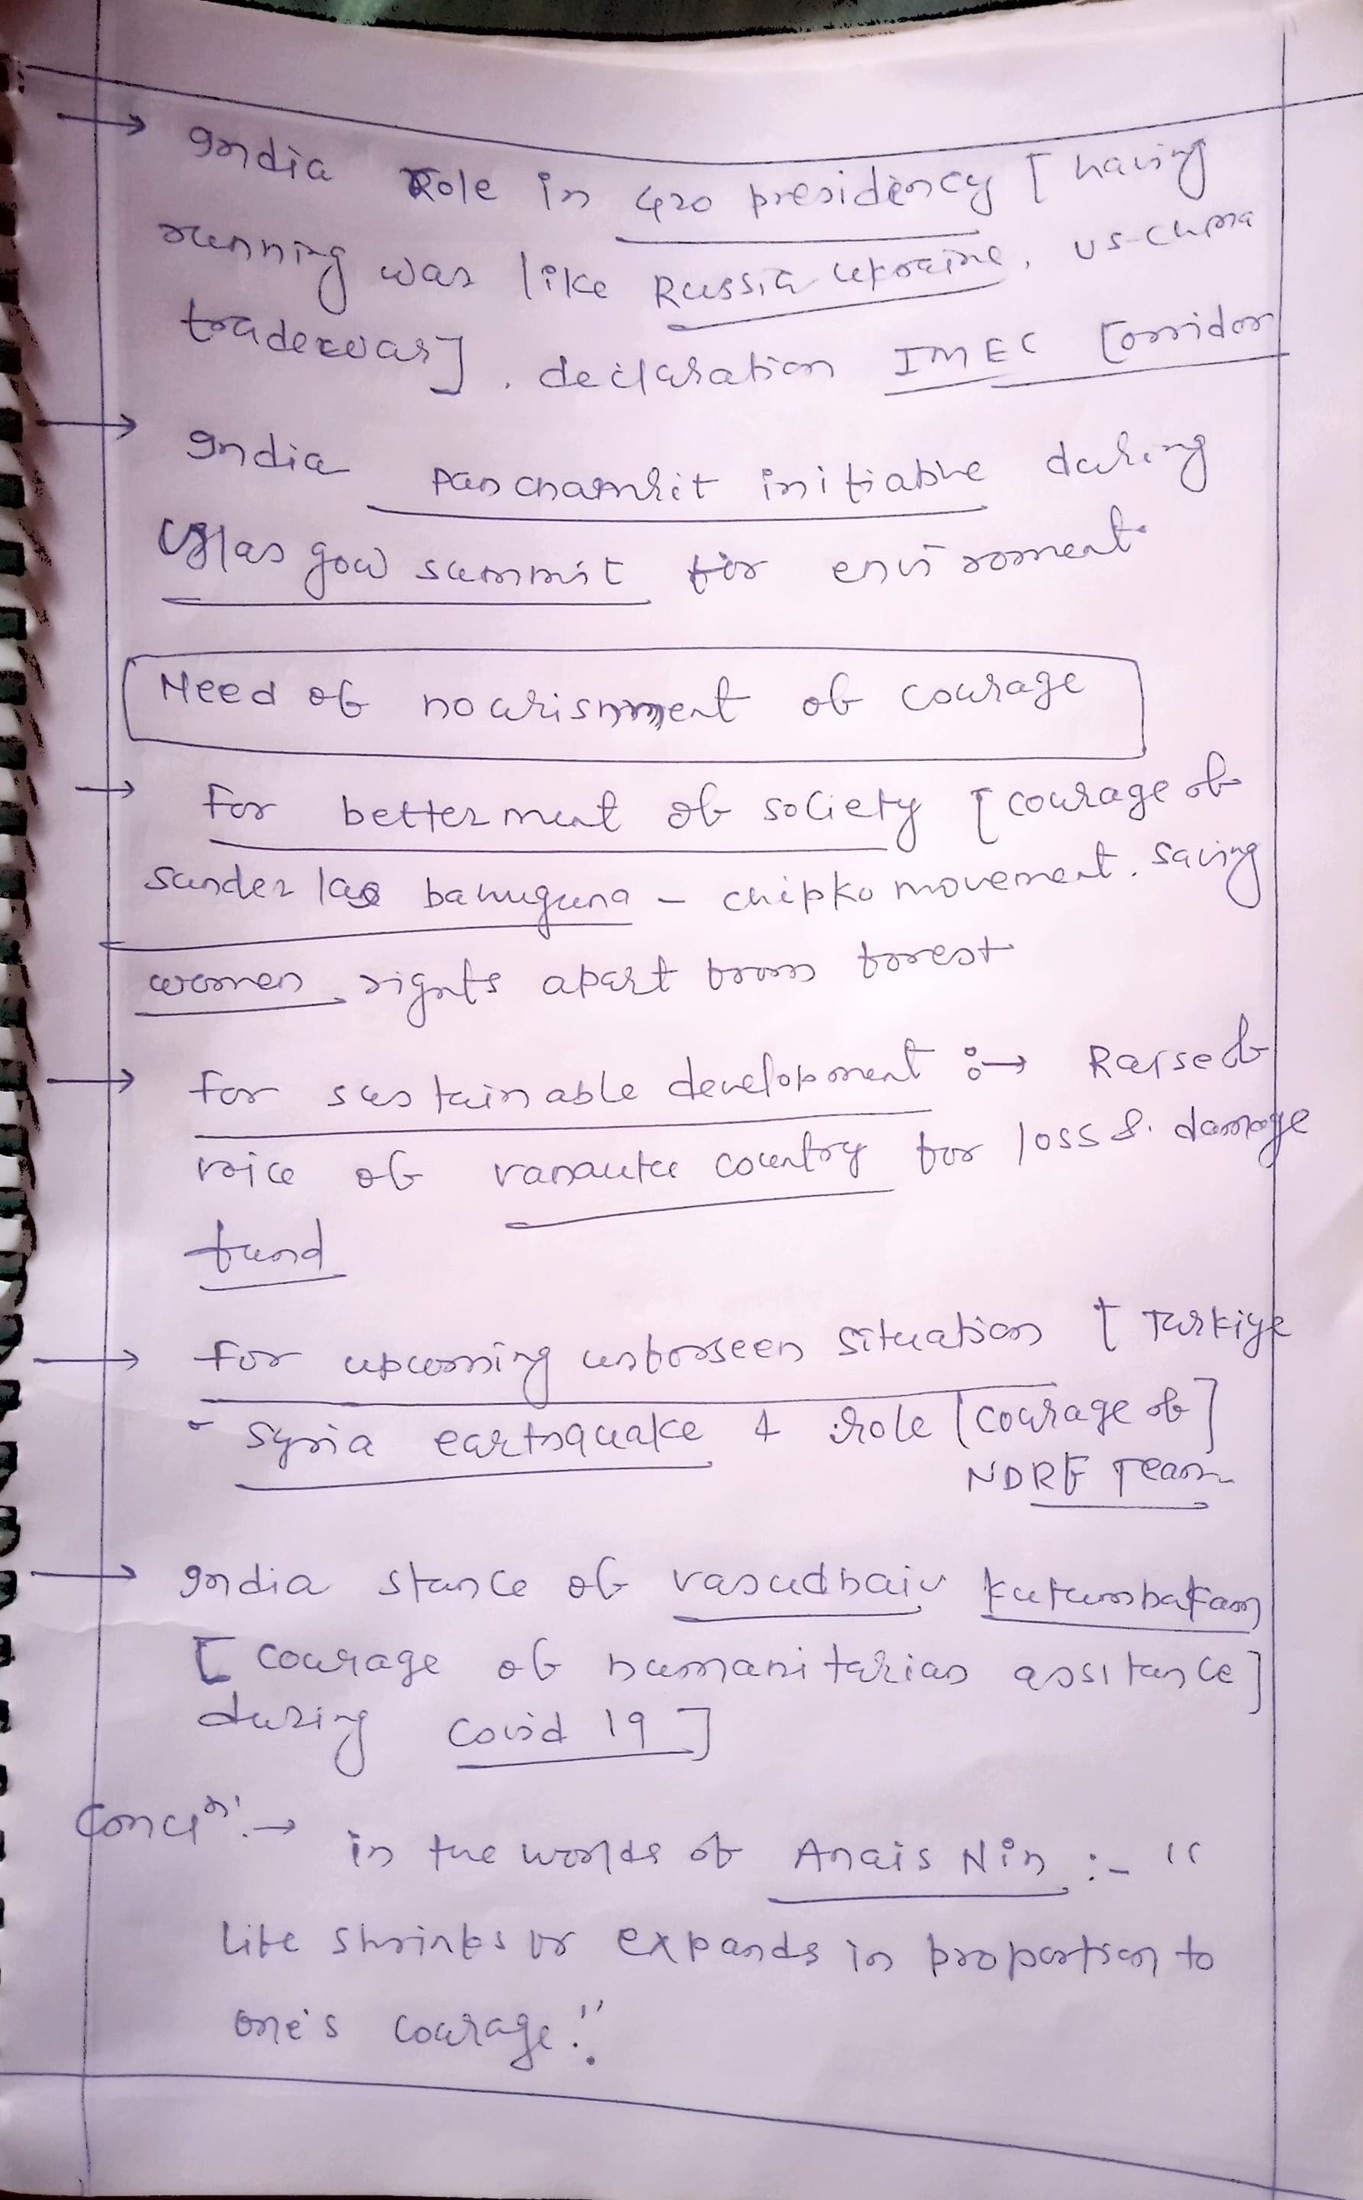 → India Role in G20 presidency [ having
running war like Russia Ukraine, US-China
tradewar] . declaration IMEC Corridor
→ India panchamrit initiative during
Glasgow summit for enviroment.
Need of nourishment of courage
→ For betterment of society [ courage of
Sunder lal bahuguna - chipko movement. saving
women rights apart from forest
→ For sustainable development :→ Raised
voice of vanautu country for loss & damage
fund
→ For upcoming unforseen situation [ Turkiye
- Syria earthquake & role [courage of]
NDRF Team
→ India stance of vasudhaiv kutumbakam
[ courage of humanitarian assitance]
during covid 19 ]
Concln: → in the words of Anais Nin :- "
life shrinks or expands in proportion to
one's courage."